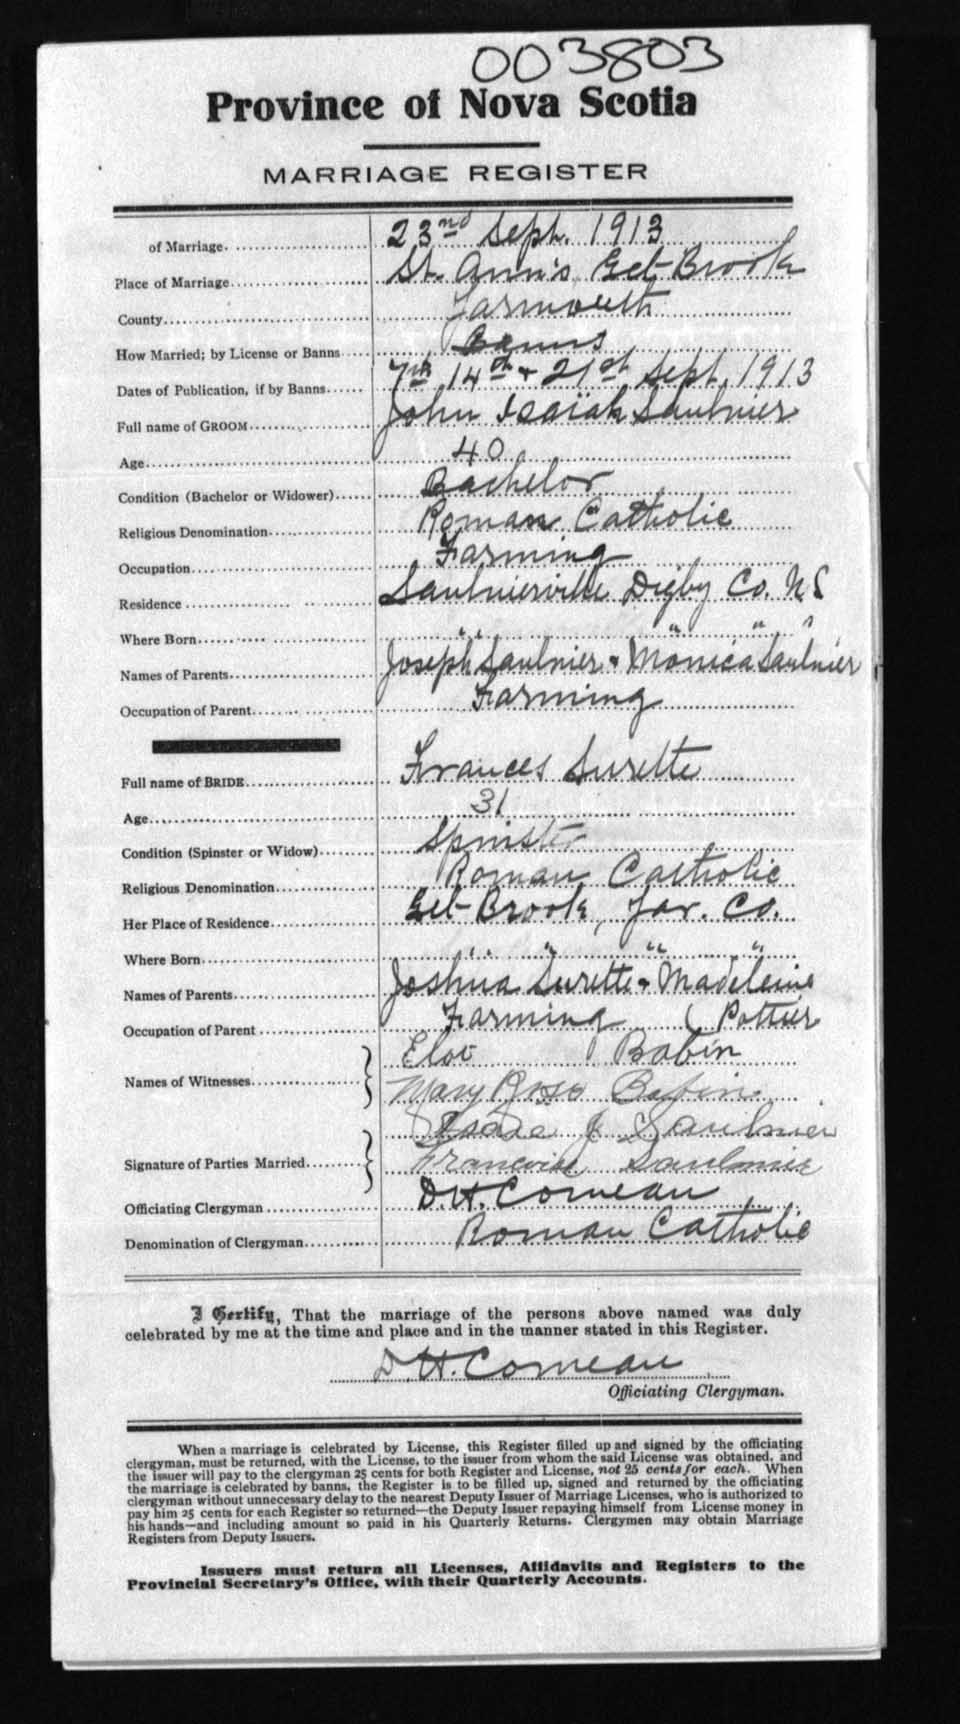 003803
Province of Nova Scotia
MARRIAGE REGISTER
of Marriage 23nd Sept. 1913
Place of Marriage St. Ann's, Eel-Brook
County Yarmouth
How Married; by License or Banns Banns
Dates of Publication, if by Banns 7th 14th + 21st Sept. 1913
Full name of GROOM John Isaiah Saulnier
Age 40
Condition (Bachelor or Widower) Bachelor
Religious Denomination Roman Catholic
Occupation Farming
Residence Saulnierville Digby Co. N.S
Where Born " " " "
Names of Parents Joseph Saulnier + Monica Saulnier
Occupation of Parent Farming
Full name of BRIDE Frances Surette
Age 31
Condition (Spinster or Widow) Spinster
Religious Denomination Roman Catholic
Her Place of Residence Eel-Brook, Yar. Co.
Where Born " " " "
Names of Parents Joshua Surette + Madeleine
Occupation of Parent Farming ( Pottier
Names of Witnesses Eloi Babin
Mary Rose Babin
Isaie J Saulnier
Signature of Parties Married Saulnier
Officiating Clergyman D.H. Comeau
Denomination of Clergyman Roman Catholic
I Certify, That the marriage of the persons above named was duly
celebrated by me at the time and place and in the manner stated in this Register.
D.H. Comeau
Officiating Clergyman.
When a marriage is celebrated by License, this Register filled up and signed by the officiating
clergyman, must be returned, with the License, to the issuer from whom the said License was obtained, and
the issuer will pay to the clergyman 25 cents for both Register and License, not 25 cents for each. When
the marriage is celebrated by banns, the Register is to be filled up, signed and returned by the officiating
clergyman without unnecessary delay to the nearest Deputy Issuer of Marriage Licenses, who is authorized to
pay him 25 cents for each Register so returned—the Deputy Issuer repaying himself from License money in
his hands—and including amount so paid in his Quarterly Returns. Clergymen may obtain Marriage
Registers from Deputy Issuers.
Issuers must return all Licenses, Affidavits and Registers to the
Provincial Secretary's Office, with their Quarterly Accounts.